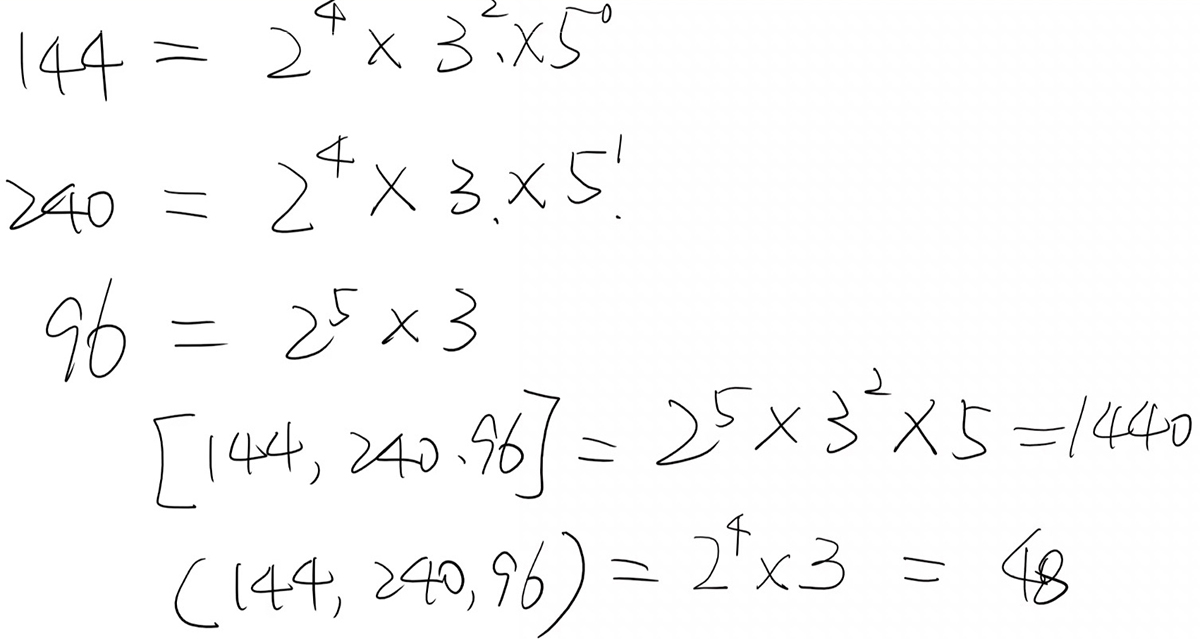 144 = 2⁴ × 3² × 5⁰
240 = 2⁴ × 3 × 5¹
96 = 2⁵ × 3
[144, 240, 96] = 2⁵ × 3² × 5 = 1440
(144, 240, 96) = 2⁴ × 3 = 48